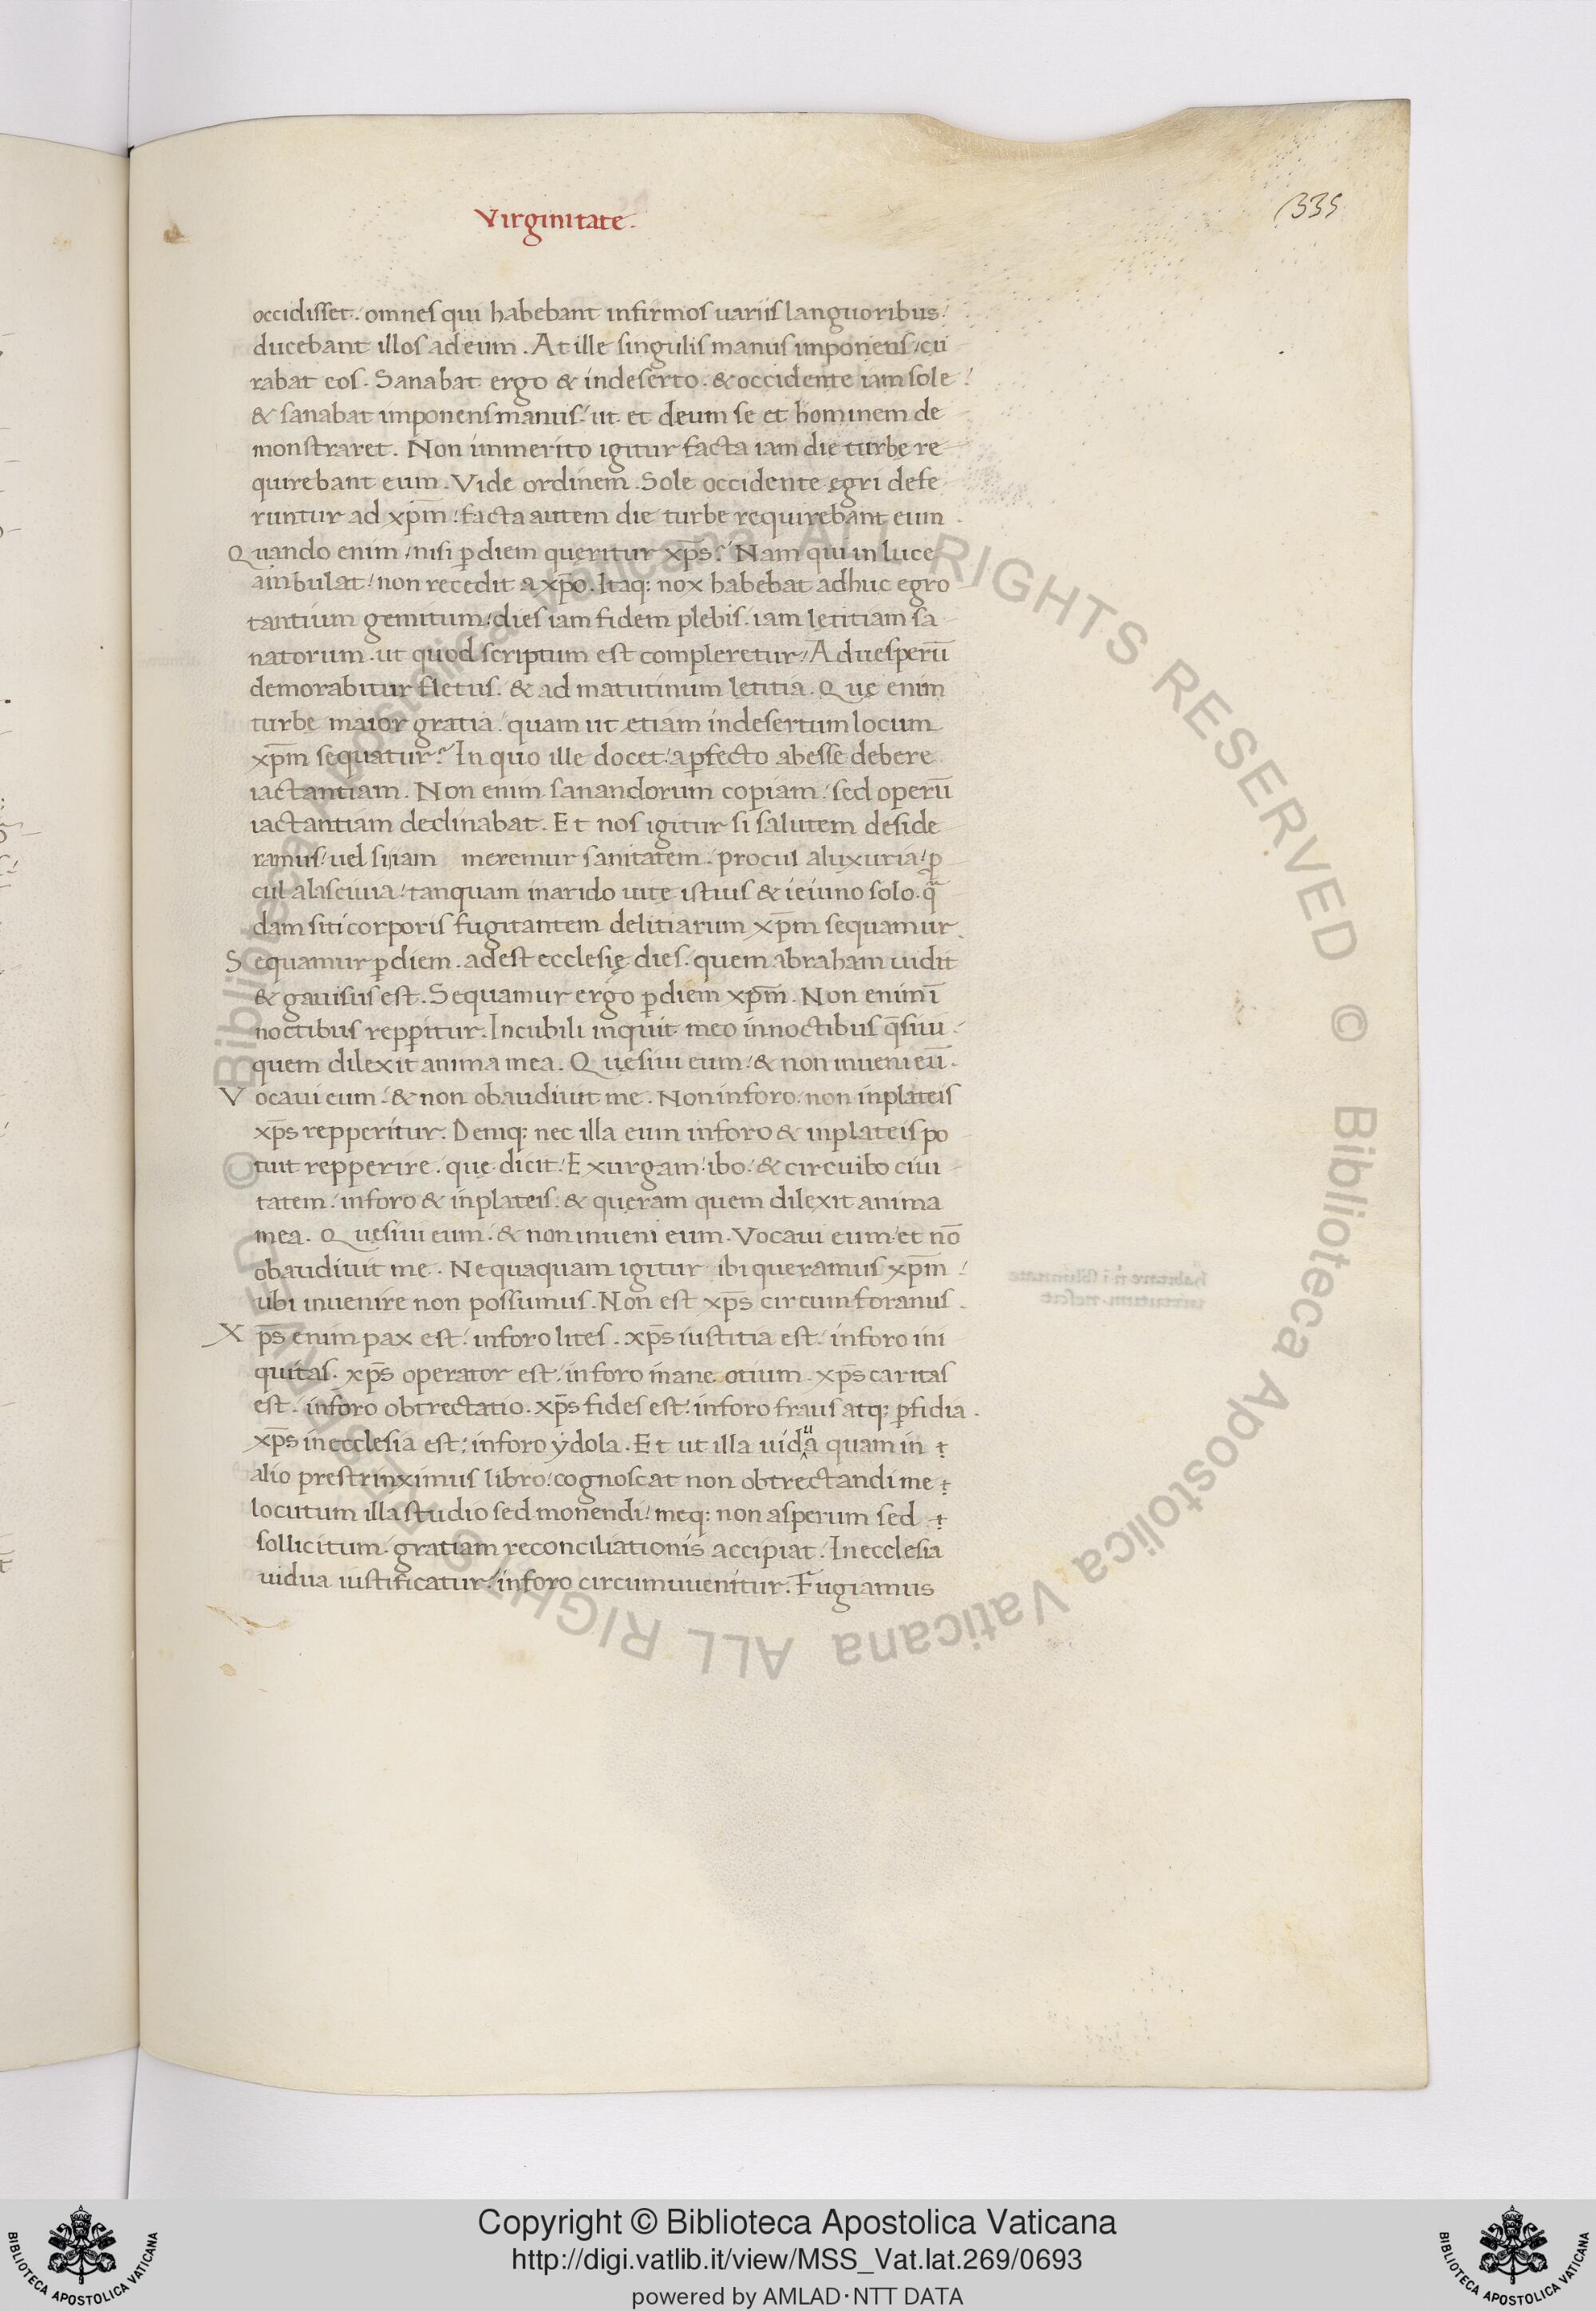 Virginitate.
335
occidisset. omnes qui habebant infirmos uariis languoribus
ducebant illos ad eum. At ille singulis manus imponens, cu
rabat eos. Sanabat ergo & in deserto. & occidente iam sole
& sanabat imponens manus, ut et deum se et hominem de
monstraret. Non immerito igitur facta iam die turbę re
quirebant eum. Vide ordinem. Sole occidente ęgri defe
runtur ad xp̄m, facta autem die turbę requirebant eum.
Quando enim, nisi ꝑ diem queritur xp̄s? Nam qui in luce
ambulat, non recedit a xp̄o. Itaq: nox habebat adhuc egro
tantium gemitum, dies iam fidem plebis. iam lętitiam sa
natorum. ut quod scriptum est compleretur, Ad uesperū
demorabitur fletus. & ad matutinum lętitia. Quę enim
turbę maior gratia, quam ut etiam in desertum locum
xp̄m sequatur? In quo ille docet, a ꝑfecto abesse debere
iactantiam. Non enim sanandorum copiam, sed operū
iactantiam declinabat. Et nos igitur si salutem deside
ramus, uel si iam meremur sanitatem, procul a luxuria, ꝓ
cul a lasciuia, tanquam in arido uitę istius & ieiuno solo. q̄
dam siti corporis fugitantem delitiarum xp̄m sequamur.
Sequamur ꝑ diem. adest ecclesię dies. quem abraham uidit
& gauisus est. Sequamur ergo ꝑ diem xp̄m. Non enim ī
noctibus repꝑitur. In cubili inquit meo in noctibus q̄siui
quem dilexit anima mea. Quęsiui eum, & non inueni eū.
Vocaui eum, & non obaudiuit me. Non in foro, non in plateis
xp̄s repperitur. Deniq: nec illa eum in foro & in plateis po
tuit repperire, quę dicit, Exurgam, ibo, & circuibo ciui
tatem, in foro & in plateis, & queram quem dilexit anima
mea. Quęsiui eum, & non inueni eum. Vocaui eum, et nō
obaudiuit me. Nequaquam igitur ibi queramus xp̄m,
ubi inuenire non possumus. Non est xp̄s circumforanus.
Xp̄s enim pax est, in foro lites. xp̄s iustitia est, in foro ini
quitas. xp̄s operator est, in foro inane otium. xp̄s caritas
est, in foro obtrectatio. xp̄s fides est, in foro fraus atq: ꝑfidia.
xp̄s in ecclesia est, in foro ydola. Et ut illa uidua quam in
alio prestrinximus libro, cognoscat non obtrectandi me
locutum illa studio sed monendi, meq: non asperum sed
sollicitum, gratiam reconciliationis accipiat. In ecclesia
uidua iustificatur, in foro circumuenitur. Fugiamus
© Biblioteca Apostolica Vaticana ALL RIGHTS RESERVED © Biblioteca Apostolica Vaticana ALL RIGHTS RESERVED
Copyright © Biblioteca Apostolica Vaticana
http://digi.vatlib.it/view/MSS_Vat.lat.269/0693
powered by AMLAD·NTT DATA
BIBLIOTECA APOSTOLICA VATICANA
BIBLIOTECA APOSTOLICA VATICANA